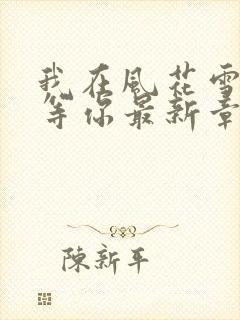 我在風花雪
等你最新章
陳新平